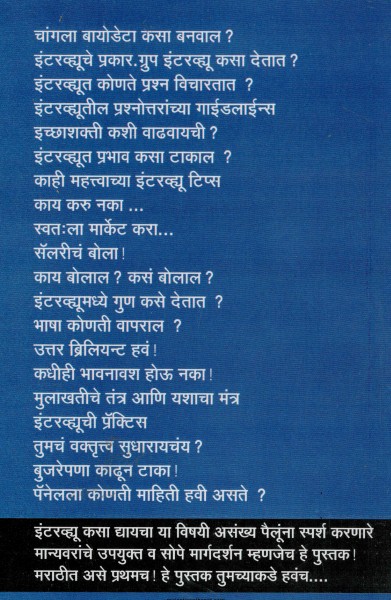 चांगला बायोडेटा कसा बनवाल ?
इंटरव्ह्यूचे प्रकार.ग्रुप इंटरव्ह्यू कसा देतात ?
इंटरव्ह्यूत कोणते प्रश्न विचारतात  ?
इंटरव्ह्यूतील प्रश्नोत्तरांच्या गाईडलाईन्स
इच्छाशक्ती कशी वाढवायची ?
इंटरव्ह्यूत प्रभाव कसा टाकाल  ?
काही महत्त्वाच्या इंटरव्ह्यू टिप्स
काय करु नका ...
स्वतःला मार्केट करा...
सॅलरीचं बोला!
काय बोलाल ? कसं बोलाल ?
इंटरव्ह्यूमध्ये गुण कसे देतात  ?
भाषा कोणती वापराल  ?
उत्तर ब्रिलियन्ट हवं!
कधीही भावनावश होऊ नका!
मुलाखतीचे तंत्र आणि यशाचा मंत्र
इंटरव्ह्यूची प्रॅक्टिस
तुमचं वक्तृत्त्व सुधारायचंय ?
बुजरेपणा काढून टाका!
पॅनेलला कोणती माहिती हवी असते  ?
इंटरव्ह्यू कसा द्यायचा या विषयी असंख्य पैलूंना स्पर्श करणारे
मान्यवरांचे उपयुक्त व सोपे मार्गदर्शन म्हणजेच हे पुस्तक!
मराठीत असे प्रथमच! हे पुस्तक तुमच्याकडे हवंच....